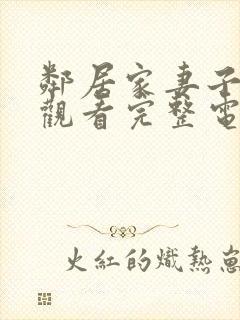 鄰居家妻子
觀看完整電
火紅的熾熱